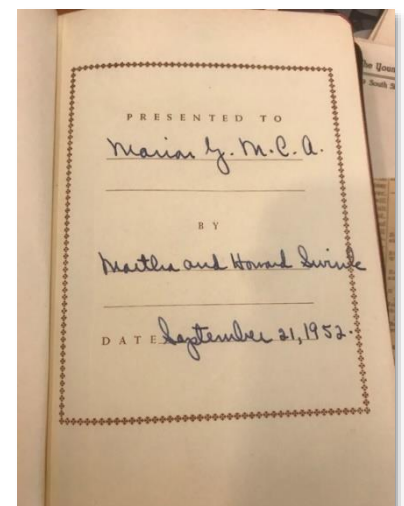 PRESENTED TO
Marion Y. M. C. A.
BY
Martha and Howard
DATE September 21, 1952.
South